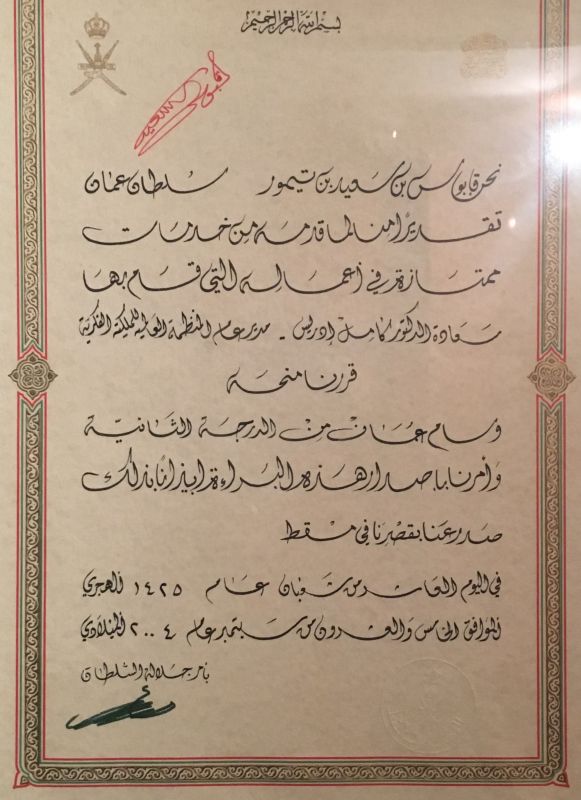 بسم الله الرحمن الرحيم
قابوس بن سعيد
نحن قابوس بن سعيد بن تيمور سلطان عمان
تقديرًا منا لما قدمه من خدمات
ممتازة في أعماله التي قام بها
سعادة الدكتور كامل إدريس - مدير عام المنظمة العالمية للملكية الفكرية
قررنا منحه
وسام عمان من الدرجة الثانية
وأمرنا بإصدار هذه البراءة إيذانًا بذلك
صدر عنا بقصرنا في مسقط
في اليوم العاشر من شعبان عام ١٤٢٥ الهجري
الموافق الخامس والعشرون من سبتمبر عام ٢٠٠٤ الميلادي
بأمر جلالة السلطان